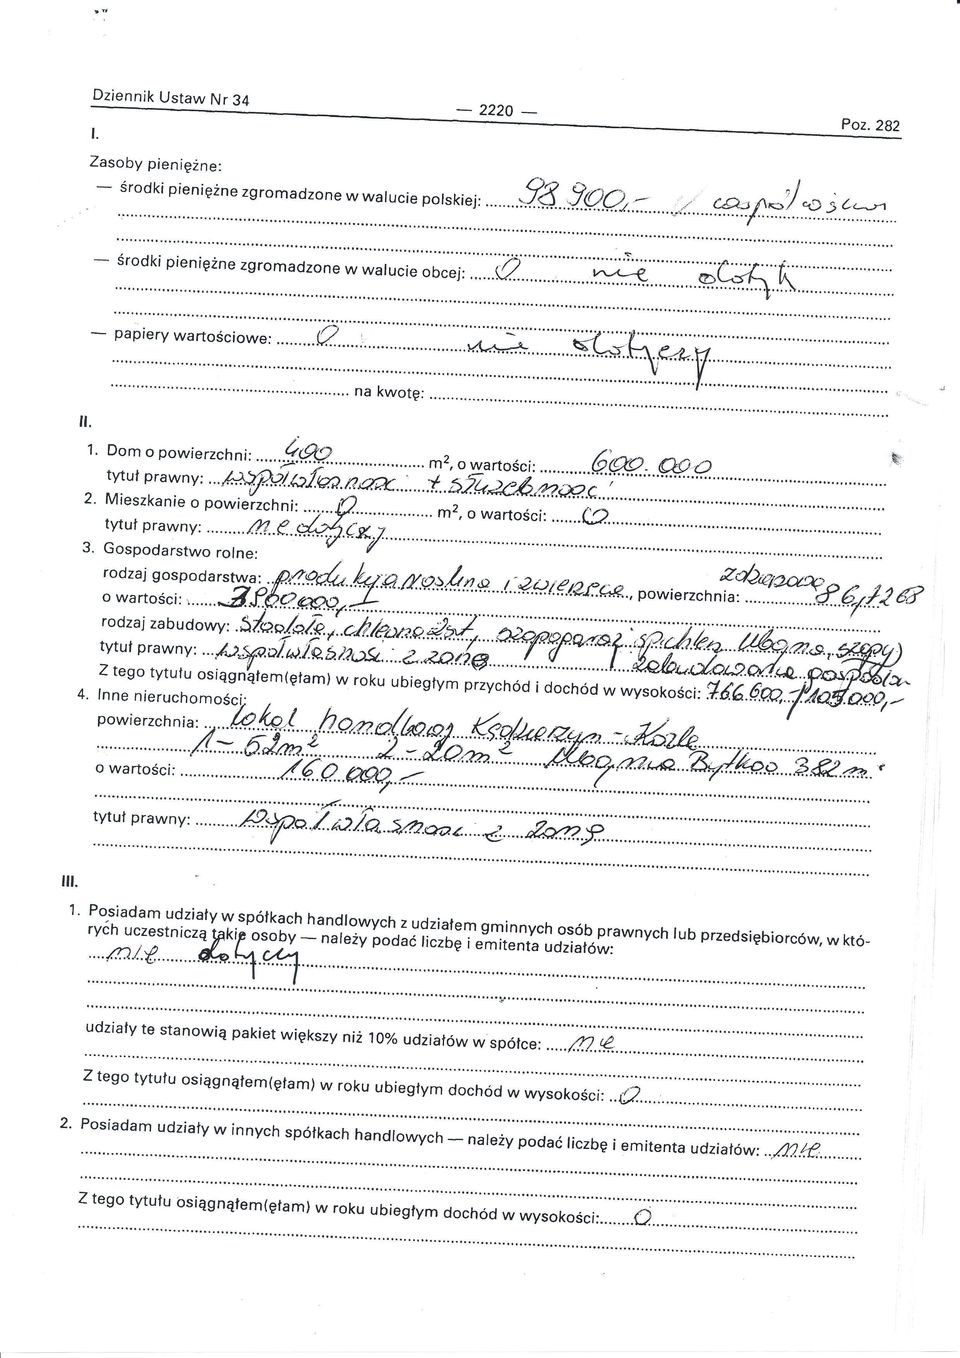 Dziennik Ustaw Nr 34 — 2220 — Poz. 282
I.
Zasoby pieniężne:
— środki pieniężne zgromadzone w walucie polskiej: 98 900,-
— środki pieniężne zgromadzone w walucie obcej: 0 nie
— papiery wartościowe: 0 nie dotyczy
na kwotę:
II.
1. Dom o powierzchni: 400 m², o wartości: 600.000
tytuł prawny: współwłasność + służebność
2. Mieszkanie o powierzchni: 0 m², o wartości: 0
tytuł prawny: nie dotyczy
3. Gospodarstwo rolne:
rodzaj gospodarstwa: produkcja roślinna i zwierzęca, powierzchnia: 86,1268
o wartości:
rodzaj zabudowy: Stodoła, chlewnia spichlerz
tytuł prawny: współwłasność z żoną
Z tego tytułu osiągnąłem(ęłam) w roku ubiegłym przychód i dochód w wysokości: 766.600,- / 105.000,-
4. Inne nieruchomości:
powierzchnia: lokal handlowy Kędzierzyn-Koźle
1 - 52m² 2 - 20m² 382 m²
o wartości: 160.000,-
tytuł prawny: współwłasność z żoną
III.
1. Posiadam udziały w spółkach handlowych z udziałem gminnych osób prawnych lub przedsiębiorców, w któ-
rych uczestniczą takie osoby — należy podać liczbę i emitenta udziałów:
nie dotyczy
udziały te stanowią pakiet większy niż 10% udziałów w spółce: nie
Z tego tytułu osiągnąłem(ęłam) w roku ubiegłym dochód w wysokości: 0
2. Posiadam udziały w innych spółkach handlowych — należy podać liczbę i emitenta udziałów: nie
Z tego tytułu osiągnąłem(ęłam) w roku ubiegłym dochód w wysokości: 0